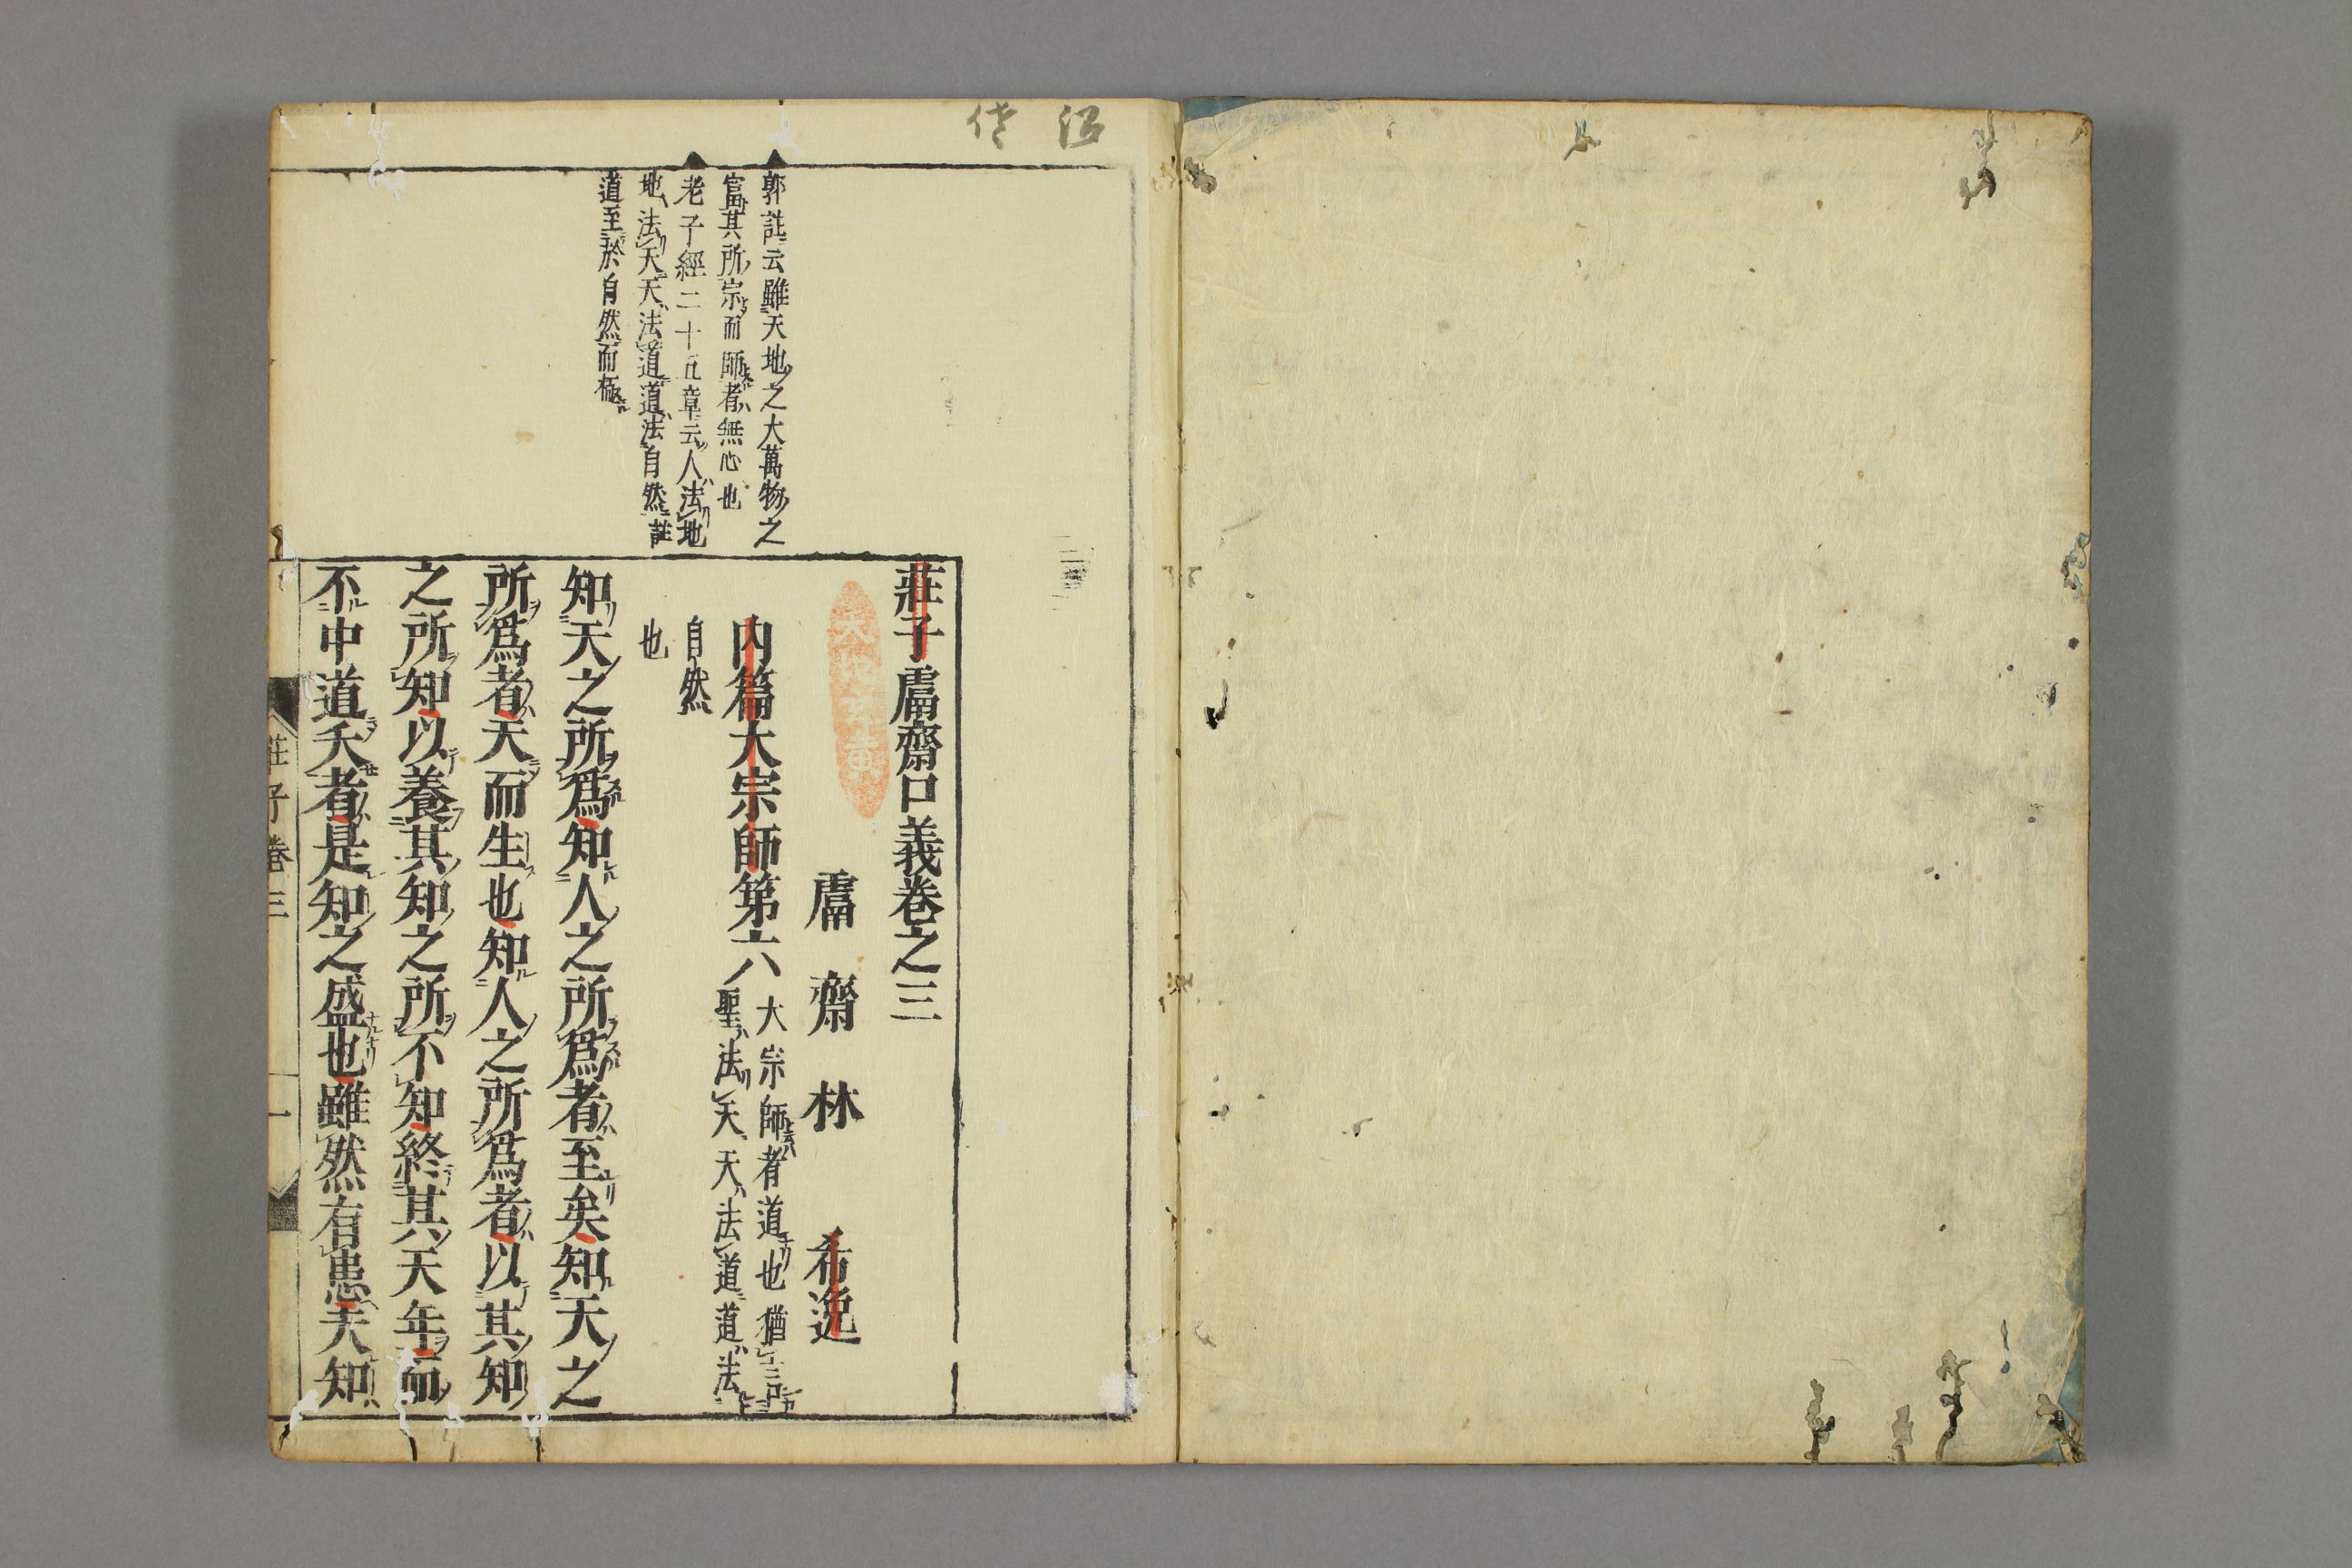 郭註云雖天地之大萬物之
富其所宗而師者無心也
老子經二十五章云人法地
地法天天法道道法自然註
道至於自然而極
莊子鬳齋口義卷之三
鬳齋林希逸
內篇大宗師第六
大宗師者道也猶言
聖法天天法道道法
自然
也
知天之所爲知人之所爲者至矣知天之
所爲者天而生也知人之所爲者以其知
之所知以養其知之所不知終其天年而
不中道夭者是知之盛也雖然有患夫知
莊子卷三
一